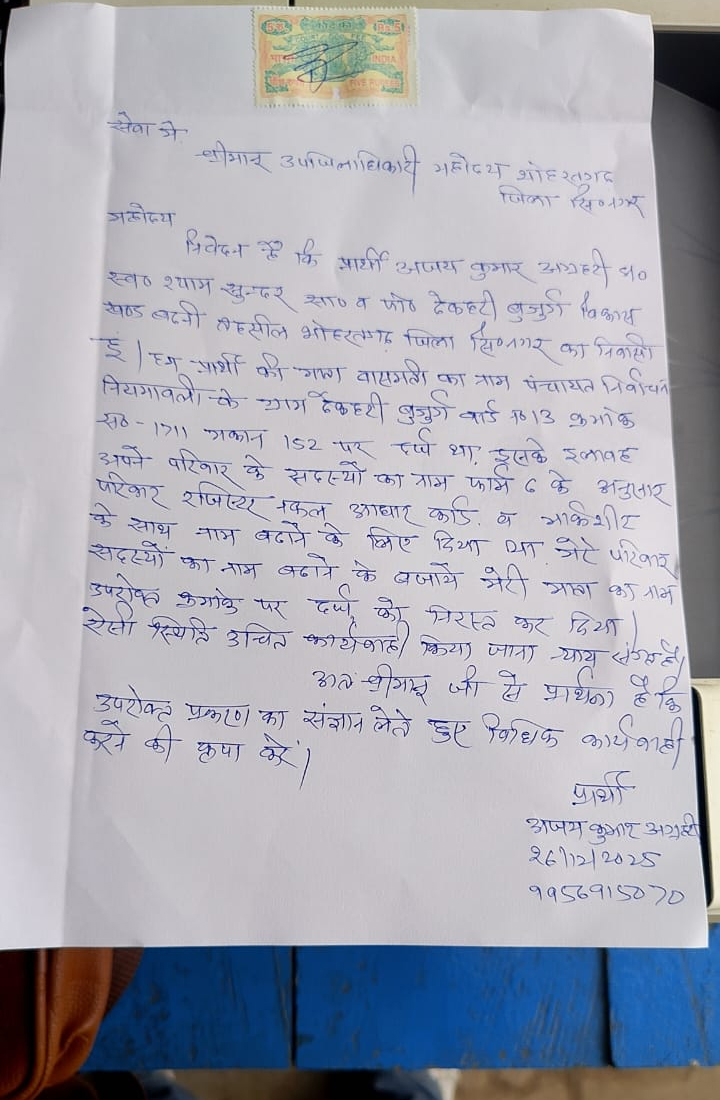 Rs.5
भारत INDIA
FIVE RUPEES
सेवा मे
श्रीमान् उपजिलाधिकारी महोदय शोहरतगढ
जिला सि०नगर
महोदय
निवेदन है कि प्रार्थी अजय कुमार अग्रहरी S/o
स्व० श्याम सुन्दर सा० व पो० टेकहटी बुजुर्ग विकास
खण्ड बढनी तहसील शोहरतगढ जिला सि०नगर का निवासी
हूं। हम प्रार्थी की माता वासमती का नाम पंचायत निर्वाचन
नियमावली के ग्राम टेकहटी बुजुर्ग वार्ड न० 13 क्रमांक
स०- 1711 मकान 152 पर दर्ज था, इसके इलावह
अपने परिवार के सदस्यों का नाम फार्म 6 के अनुसार
परिवार रजिस्टर नकल आधार कार्ड. व मार्कशीट
के साथ नाम बढाने के लिए दिया था मेरे परिवार
सदस्यों का नाम बढाने के बजाये मेरी माता का नाम
उपरोक्त क्रमांक पर दर्ज को निरस्त कर दिया।
ऐसी स्थिति उचित कार्यवाही किया जाना न्याय संगत है।
अतः श्रीमान् जी से प्रार्थना है कि
उपरोक्त प्रकरण का संज्ञान लेते हुए विधिक कार्यवाही
करने की कृपा करें।
प्रार्थी
अजय कुमार अग्रहरी
26/12/2025
9956915070